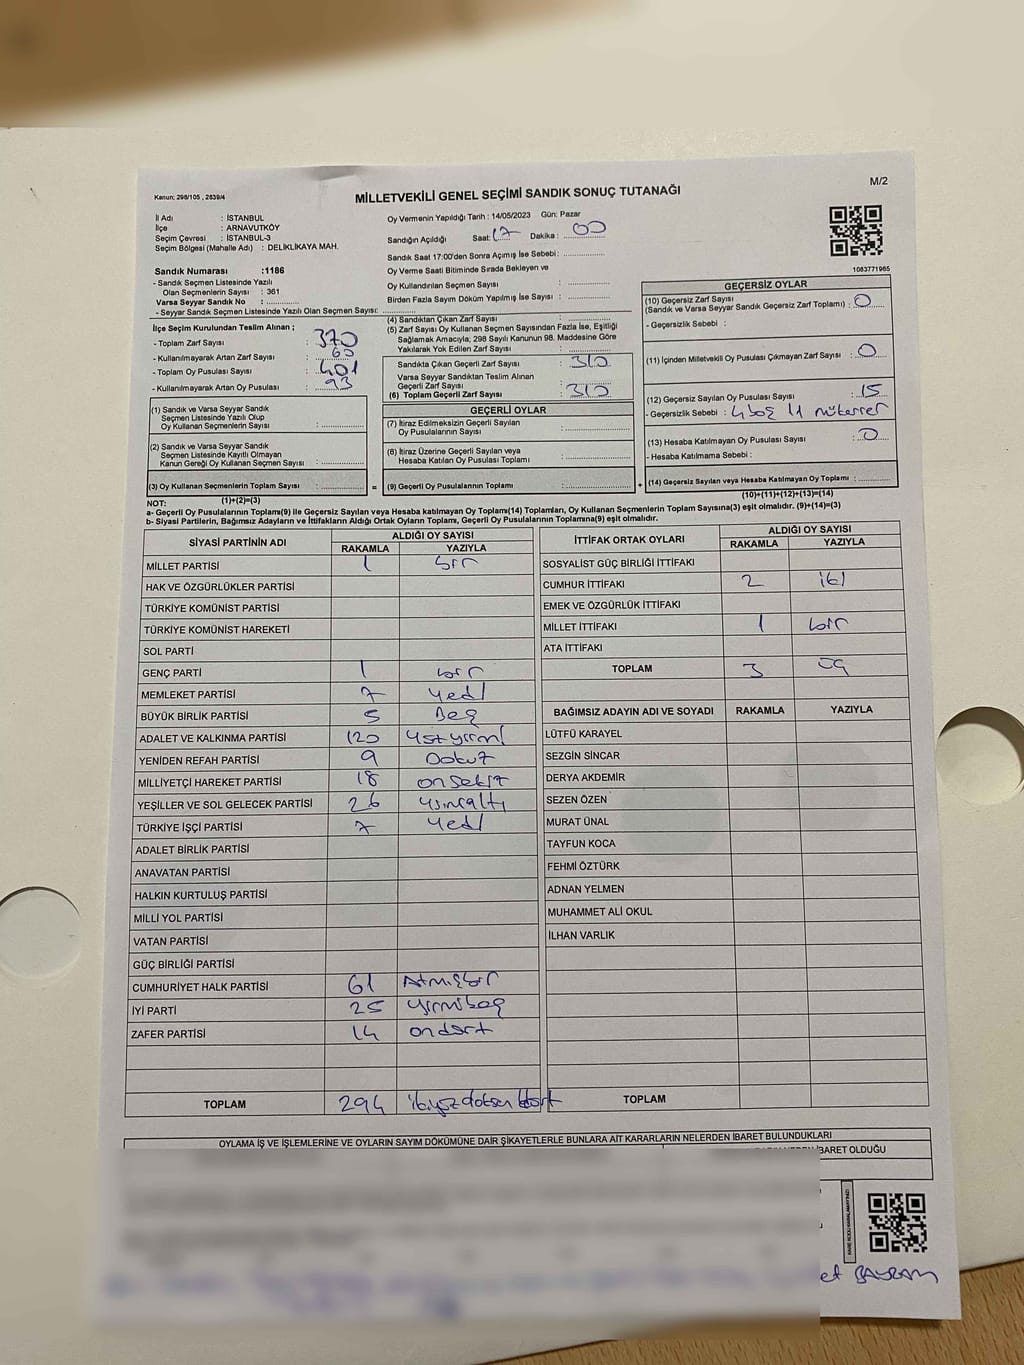 M/2
Kanun: 298/105 , 2839/4
MİLLETVEKİLİ GENEL SEÇİMİ SANDIK SONUÇ TUTANAĞI
İl Adı : İSTANBUL
İlçe : ARNAVUTKÖY
Seçim Çevresi : İSTANBUL-3
Seçim Bölgesi (Mahalle Adı) : DELİKLİKAYA MAH.
Oy Vermenin Yapıldığı Tarih : 14/05/2023 Gün: Pazar
Sandığın Açıldığı Saat: 17 Dakika : 00
Sandık Saat 17:00'den Sonra Açımış İse Sebebi:
Oy Verme Saati Bitiminde Sırada Bekleyen ve
Oy Kullandırılan Seçmen Sayısı :
Birden Fazla Sayım Döküm Yapılmış İse Sayısı :
1083771965
Sandık Numarası :1186
- Sandık Seçmen Listesinde Yazılı
Olan Seçmenlerin Sayısı : 361
Varsa Seyyar Sandık No :
- Seyyar Sandık Seçmen Listesinde Yazılı Olan Seçmen Sayısı:
İlçe Seçim Kurulundan Teslim Alınan ;
- Toplam Zarf Sayısı : 370
- Kullanılmayarak Artan Zarf Sayısı : 60
- Toplam Oy Pusulası Sayısı : 401
- Kullanılmayarak Artan Oy Pusulası : 93
(1) Sandık ve Varsa Seyyar Sandık
Seçmen Listesinde Yazılı Olup
Oy Kullanan Seçmenlerin Sayısı :
(2) Sandık ve Varsa Seyyar Sandık
Seçmen Listesinde Kayıtlı Olmayan
Kanun Gereği Oy Kullanan Seçmen Sayısı :
(3) Oy Kullanan Seçmenlerin Toplam Sayısı :
(1)+(2)=(3)
(4) Sandıktan Çıkan Zarf Sayısı :
(5) Zarf Sayısı Oy Kullanan Seçmen Sayısından Fazla İse, Eşitliği
Sağlamak Amacıyla; 298 Sayılı Kanunun 98. Maddesine Göre
Yakılarak Yok Edilen Zarf Sayısı :
Sandıkta Çıkan Geçerli Zarf Sayısı : 310
Varsa Seyyar Sandıktan Teslim Alınan
Geçerli Zarf Sayısı :
(6) Toplam Geçerli Zarf Sayısı : 310
GEÇERLİ OYLAR
(7) İtiraz Edilmeksizin Geçerli Sayılan
Oy Pusulalarının Sayısı :
(8) İtiraz Üzerine Geçerli Sayılan veya
Hesaba Katılan Oy Pusulası Toplamı :
= (9) Geçerli Oy Pusulalarının Toplamı :
GEÇERSİZ OYLAR
(10) Geçersiz Zarf Sayısı
(Sandık ve Varsa Seyyar Sandık Geçersiz Zarf Toplamı) : 0
- Geçersizlik Sebebi :
(11) İçinden Milletvekili Oy Pusulası Çıkmayan Zarf Sayısı : 0
(12) Geçersiz Sayılan Oy Pusulası Sayısı : 15
- Geçersizlik Sebebi : 4 boş 11 mükerrer
(13) Hesaba Katılmayan Oy Pusulası Sayısı : 0
- Hesaba Katılmama Sebebi :
+ (14) Geçersiz Sayılan veya Hesaba Katılmayan Oy Toplamı :
(10)+(11)+(12)+(13)=(14)
NOT:
a- Geçerli Oy Pusulalarının Toplamı(9) ile Geçersiz Sayılan veya Hesaba katılmayan Oy Toplamı(14) Toplamları, Oy Kullanan Seçmenlerin Toplam Sayısına(3) eşit olmalıdır. (9)+(14)=(3)
b- Siyasi Partilerin, Bağımsız Adayların ve İttifakların Aldığı Ortak Oyların Toplamı, Geçerli Oy Pusulalarının Toplamına(9) eşit olmalıdır.
SİYASİ PARTİNİN ADI ALDIĞI OY SAYISI
RAKAMLA YAZIYLA
MİLLET PARTİSİ 1 bir
HAK VE ÖZGÜRLÜKLER PARTİSİ
TÜRKİYE KOMÜNİST PARTİSİ
TÜRKİYE KOMÜNİST HAREKETİ
SOL PARTİ
GENÇ PARTİ 1 bir
MEMLEKET PARTİSİ 7 yedi
BÜYÜK BİRLİK PARTİSİ 5 Beş
ADALET VE KALKINMA PARTİSİ 120 yüzyirmi
YENİDEN REFAH PARTİSİ 9 Dokuz
MİLLİYETÇİ HAREKET PARTİSİ 18 onsekiz
YEŞİLLER VE SOL GELECEK PARTİSİ 26 yirmialtı
TÜRKİYE İŞÇİ PARTİSİ 7 yedi
ADALET BİRLİK PARTİSİ
ANAVATAN PARTİSİ
HALKIN KURTULUŞ PARTİSİ
MİLLİ YOL PARTİSİ
VATAN PARTİSİ
GÜÇ BİRLİĞİ PARTİSİ
CUMHURİYET HALK PARTİSİ 61 Atmışbir
İYİ PARTİ 25 yirmibeş
ZAFER PARTİSİ 14 ondört
TOPLAM 294
İTTİFAK ORTAK OYLARI ALDIĞI OY SAYISI
RAKAMLA YAZIYLA
SOSYALİST GÜÇ BİRLİĞİ İTTİFAKI
CUMHUR İTTİFAKI 2 iki
EMEK VE ÖZGÜRLÜK İTTİFAKI
MİLLET İTTİFAKI 1 bir
ATA İTTİFAKI
TOPLAM 3 üç
BAĞIMSIZ ADAYIN ADI VE SOYADI RAKAMLA YAZIYLA
LÜTFÜ KARAYEL
SEZGİN SİNCAR
DERYA AKDEMİR
SEZEN ÖZEN
MURAT ÜNAL
TAYFUN KOCA
FEHMİ ÖZTÜRK
ADNAN YELMEN
MUHAMMET ALİ OKUL
İLHAN VARLIK
TOPLAM
OYLAMA İŞ VE İŞLEMLERİNE VE OYLARIN SAYIM DÖKÜMÜNE DAİR ŞİKAYETLERLE BUNLARA AİT KARARLARIN NELERDEN İBARET BULUNDUKLARI
İBARET OLDUĞU
KARE KODU KARALAMAYINIZ!
et BAYRAM